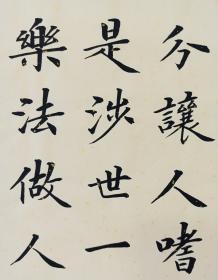 分讓人嗜
是涉世一
樂法做人